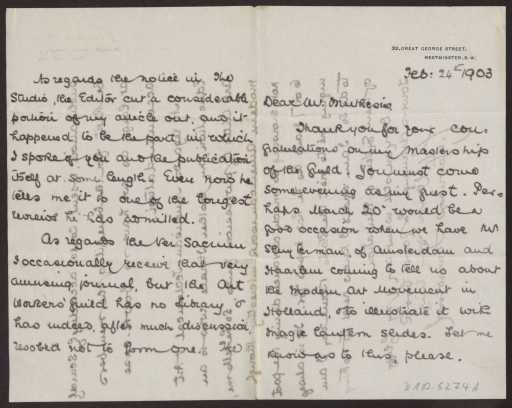 32, GREAT GEORGE STREET,
WESTMINSTER, S.W.
Feb: 24th 1903
Dear Mr. Muthesius
Thank you for your con-
gratulations on my Mastership
of the Guild. You must come
some evening as my guest. Per-
haps March 20th would be a
good occasion when we have Mr
of Amsterdam and
Haarlem coming to tell us about
the Modern Art Movement in
Holland, & to illustrate it with
Magic Lantern Slides. Let me
know as to this, please.
As regards the notice in The
Studio, the Editor cut a considerable
portion of my article out, and it
happened to be the part in which
I spoke of you and the publication
itself at some length. Even now he
tells me it is one of the longest
reviews he has admitted.
As regards the Ver Sacrum
I occasionally receive that very
amusing journal, but the Art
Workers' Guild has no library &
has indeed, after much discussion
resolved not to form one. We